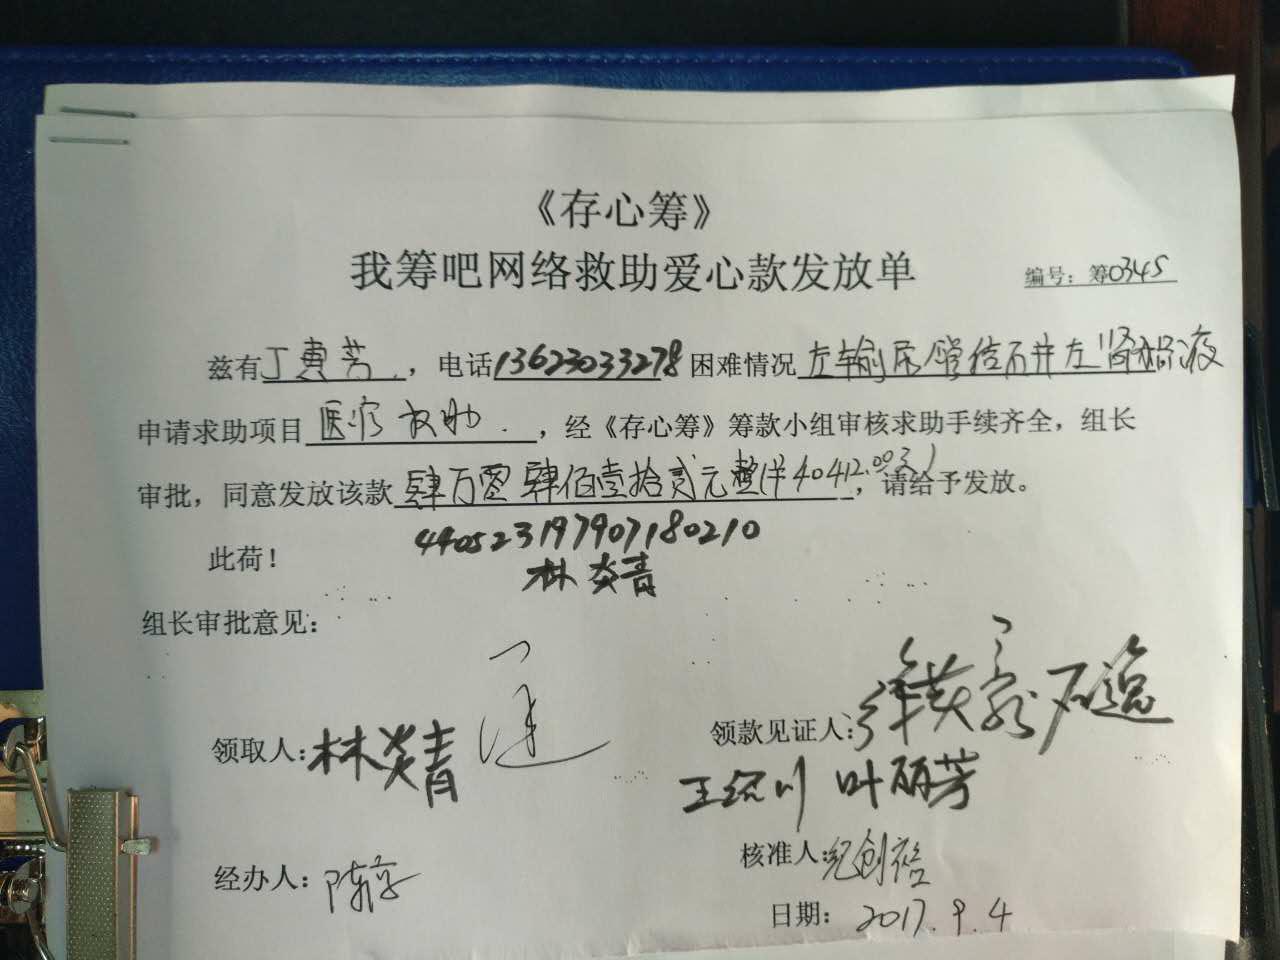 《存心筹》
我筹吧网络救助爱心款发放单
编号：筹0345
兹有丁惠芳，电话13623033278困难情况左输尿管结石并左肾积液
申请求助项目医疗救助，经《存心筹》筹款小组审核求助手续齐全，组长
审批，同意发放该款肆万零肆佰壹拾贰元整(¥40412.00元)，请给予发放。
此荷！
440523197907180210
林炎青
组长审批意见：
领取人：林炎青
领款见证人：
王绍川 叶丽芳
经办人：
核准人：
日期：2017.9.4